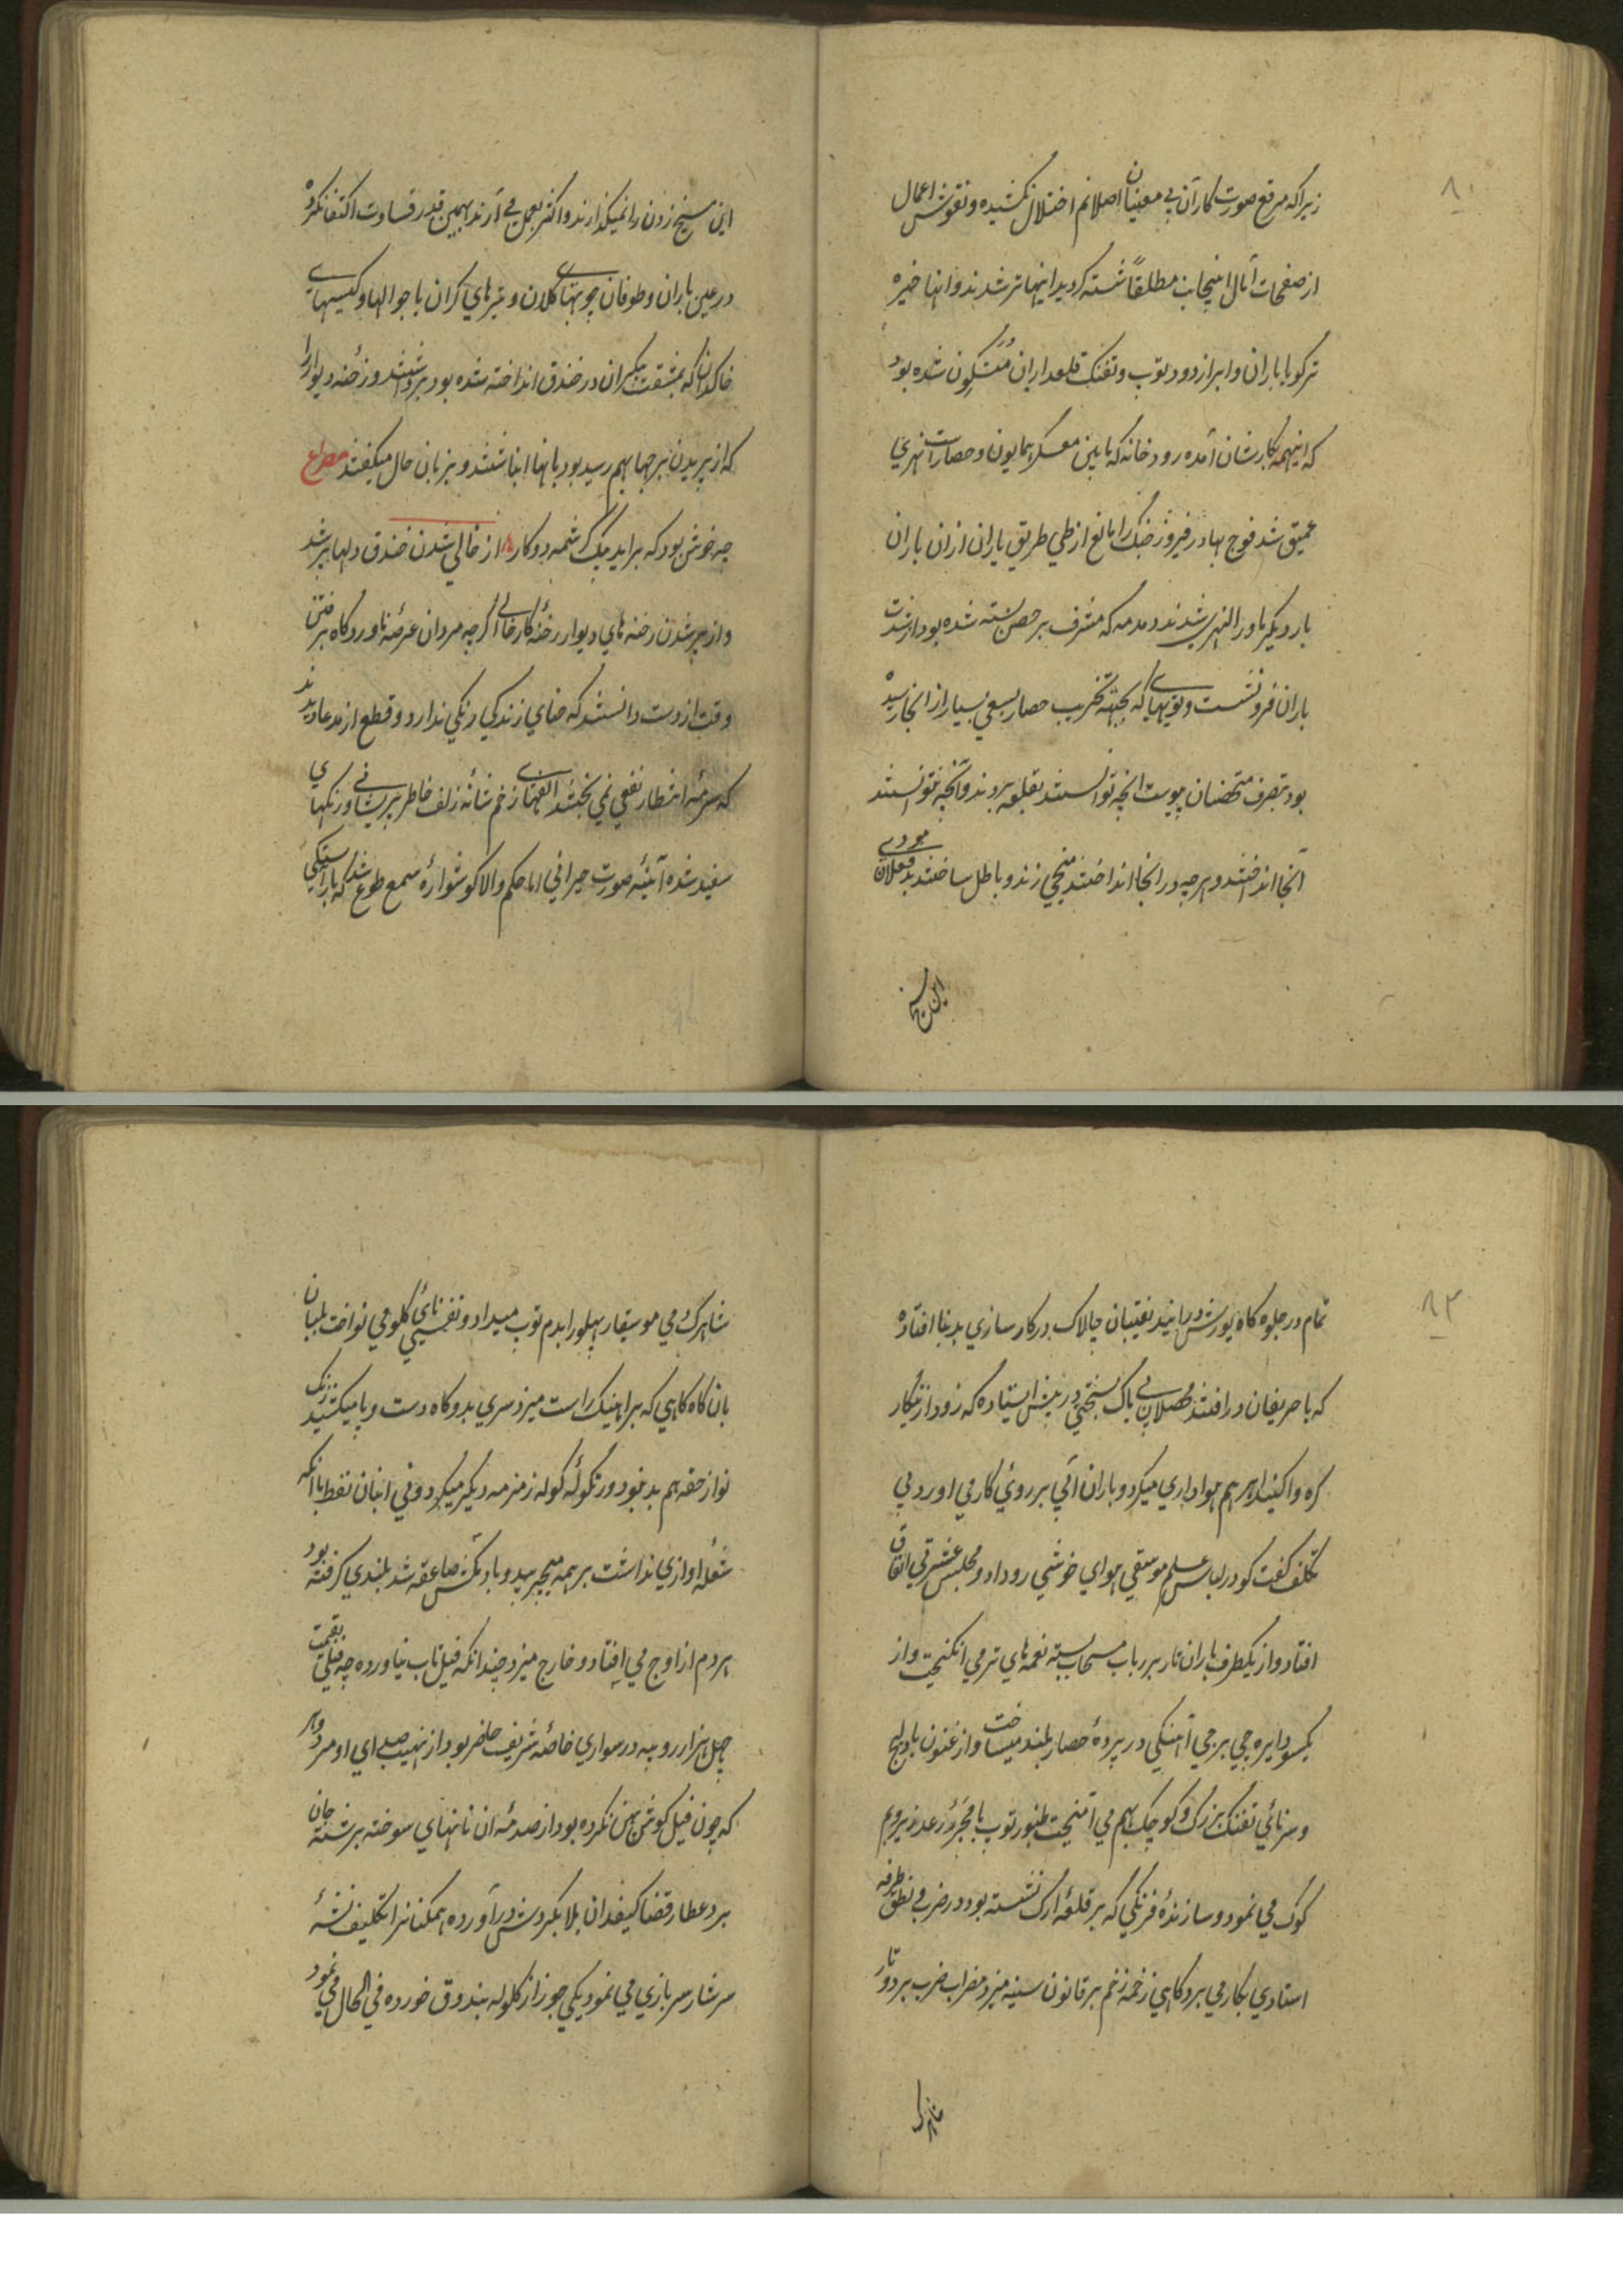 ۸۰
زیراکه مرقع صورت کار آن بی معنیان اصلا نم اختلال نکشیده و نقوش اعمال
از صفحات آمال اینجانب مطلقاً شسته کردید اینها تر شدند و انها خیره
تر کویا باران و ابر از دود توپ و تفنک قلعداران متکون شده بود
که اینهمه بکار شان آمده رودخانه که مابین معسکر همایون و حصار است نهری
عمیق شد فوج بهادر فیروز جنک را مانع از طی طریق یاران ازان باران
بار دیکر ماورالنهری شدند و دمدمه که مشرف بر حصن بسته شده بود از شدت
باران فرو نشست و توپهای که بجهته تخریب حصار بسعی بسیار از انجا رسیده
بود بتصرف متحصنان پیوست انچه توانستند بقلعه بردند و آنچه نتوانستند
آنجا انداختند و هرچه در انجا انداختند میخی زند و باطل ساختند بد فعلان
این میخ
این میخ زدن را نمیکذارند و اکثر بعمل می آرند بهمین قدر قساوت اکتفا نکرده
در عین باران و طوفان چوبهای کلان و تیرهای کران با جوالها و کیسهای
خاک را که بمشقت بیکران در خندق انداخته شده بود برداشتند و رخنه دیوار را
که از پریدن برجها بهم رسید بود بانها انباشتند و بزبان حال میکفتند مصراع
چه خوش بود که براید بیک کرشمه دو کار از خالی شدن خندق دلها پر شد
و از پر شدن رخنه های دیوار رخنه کار خالی اکرچه مردان عرصه ناوردکاه برفتن
وقت از دست دانستند که حنای زندکی رنکی ندارد و قطع از مدعا دیدند
که سرمه انتظار نفعی نمی بخشد الفهای زخم شانه زلف خاطر پریشانی و رنکهای
سفید شده آینه صورت حیرانی اما حکم والا کوشواره سمع طوع شد که باراستکی
۸۲
تمام در جلوه کاه یورش درایند نقیبان چالاک در کار سازی بدینا افتاده
که با حریفان در افتند محصلان بی باک بسختی در پیش ایستاده که زود از نیکار
کره واکنید ابر هم هواداری میکرد و باران آبی بر روی کار می اورد بی
تکلف کفت کو در لباس علم موسیقی هوای خوشی رو داد و مجلس عشرتی اتفاق
افتاد و از یکطرف باران تار بر رباب سحاب بسته نغمه های تر می انکیخت و از
یکسو دایره چی برجی آهنکی در پرده حصار بلند میساخت و ارغنون بادلیج
و سرنائی تفنک بزرک و کوچک بهم می آمیخت طنبور توپ با غرّ رعد زیر و بم
کوک می نمود و سازنده فرنکی که بر قلعه ارک نشسته بود در ضرب نطق طرفه
استادی بکار می برد کاهی زخمه زخم بر قانون سینه میزد مضراب ضرب بر دو تار
شاهرک
شاهرک دمی موسیقار پهلو را بدم توپ میداد و نفسی نای کلو می نواخت بلبان
بان کاه کاهی که براهنیک راست میزد سری بدو کاه دست و پا میکشید زنک
نواز حقه هم بد نبود و زنکوله کوله زمزمه دیکر میکرد و نی انبان نفط با انکه
شعله اوازی نداشت بر همه میچربید و باد کش صاعقه شد بلندی کرفته بود
هر دم از اوج می افتاد و خارج میزد چندانکه فیل تاب نیاورده چه فیلی بقیمت
چهل هزار روپیه در سواری خاصه شریفه حاضر بود از نهیب صدای او مرد و هر
که چون فیل کوش پهن نکرده بود از صدمه ان نانهای سوخته برشته جان
برد عطار قضا کیفدان بلا بکردش درآورده همکنانرا تکلیف نشه
سرشار سربازی می نمود یکی جوز از کلوله بندوق خورده فی الحال می نمود